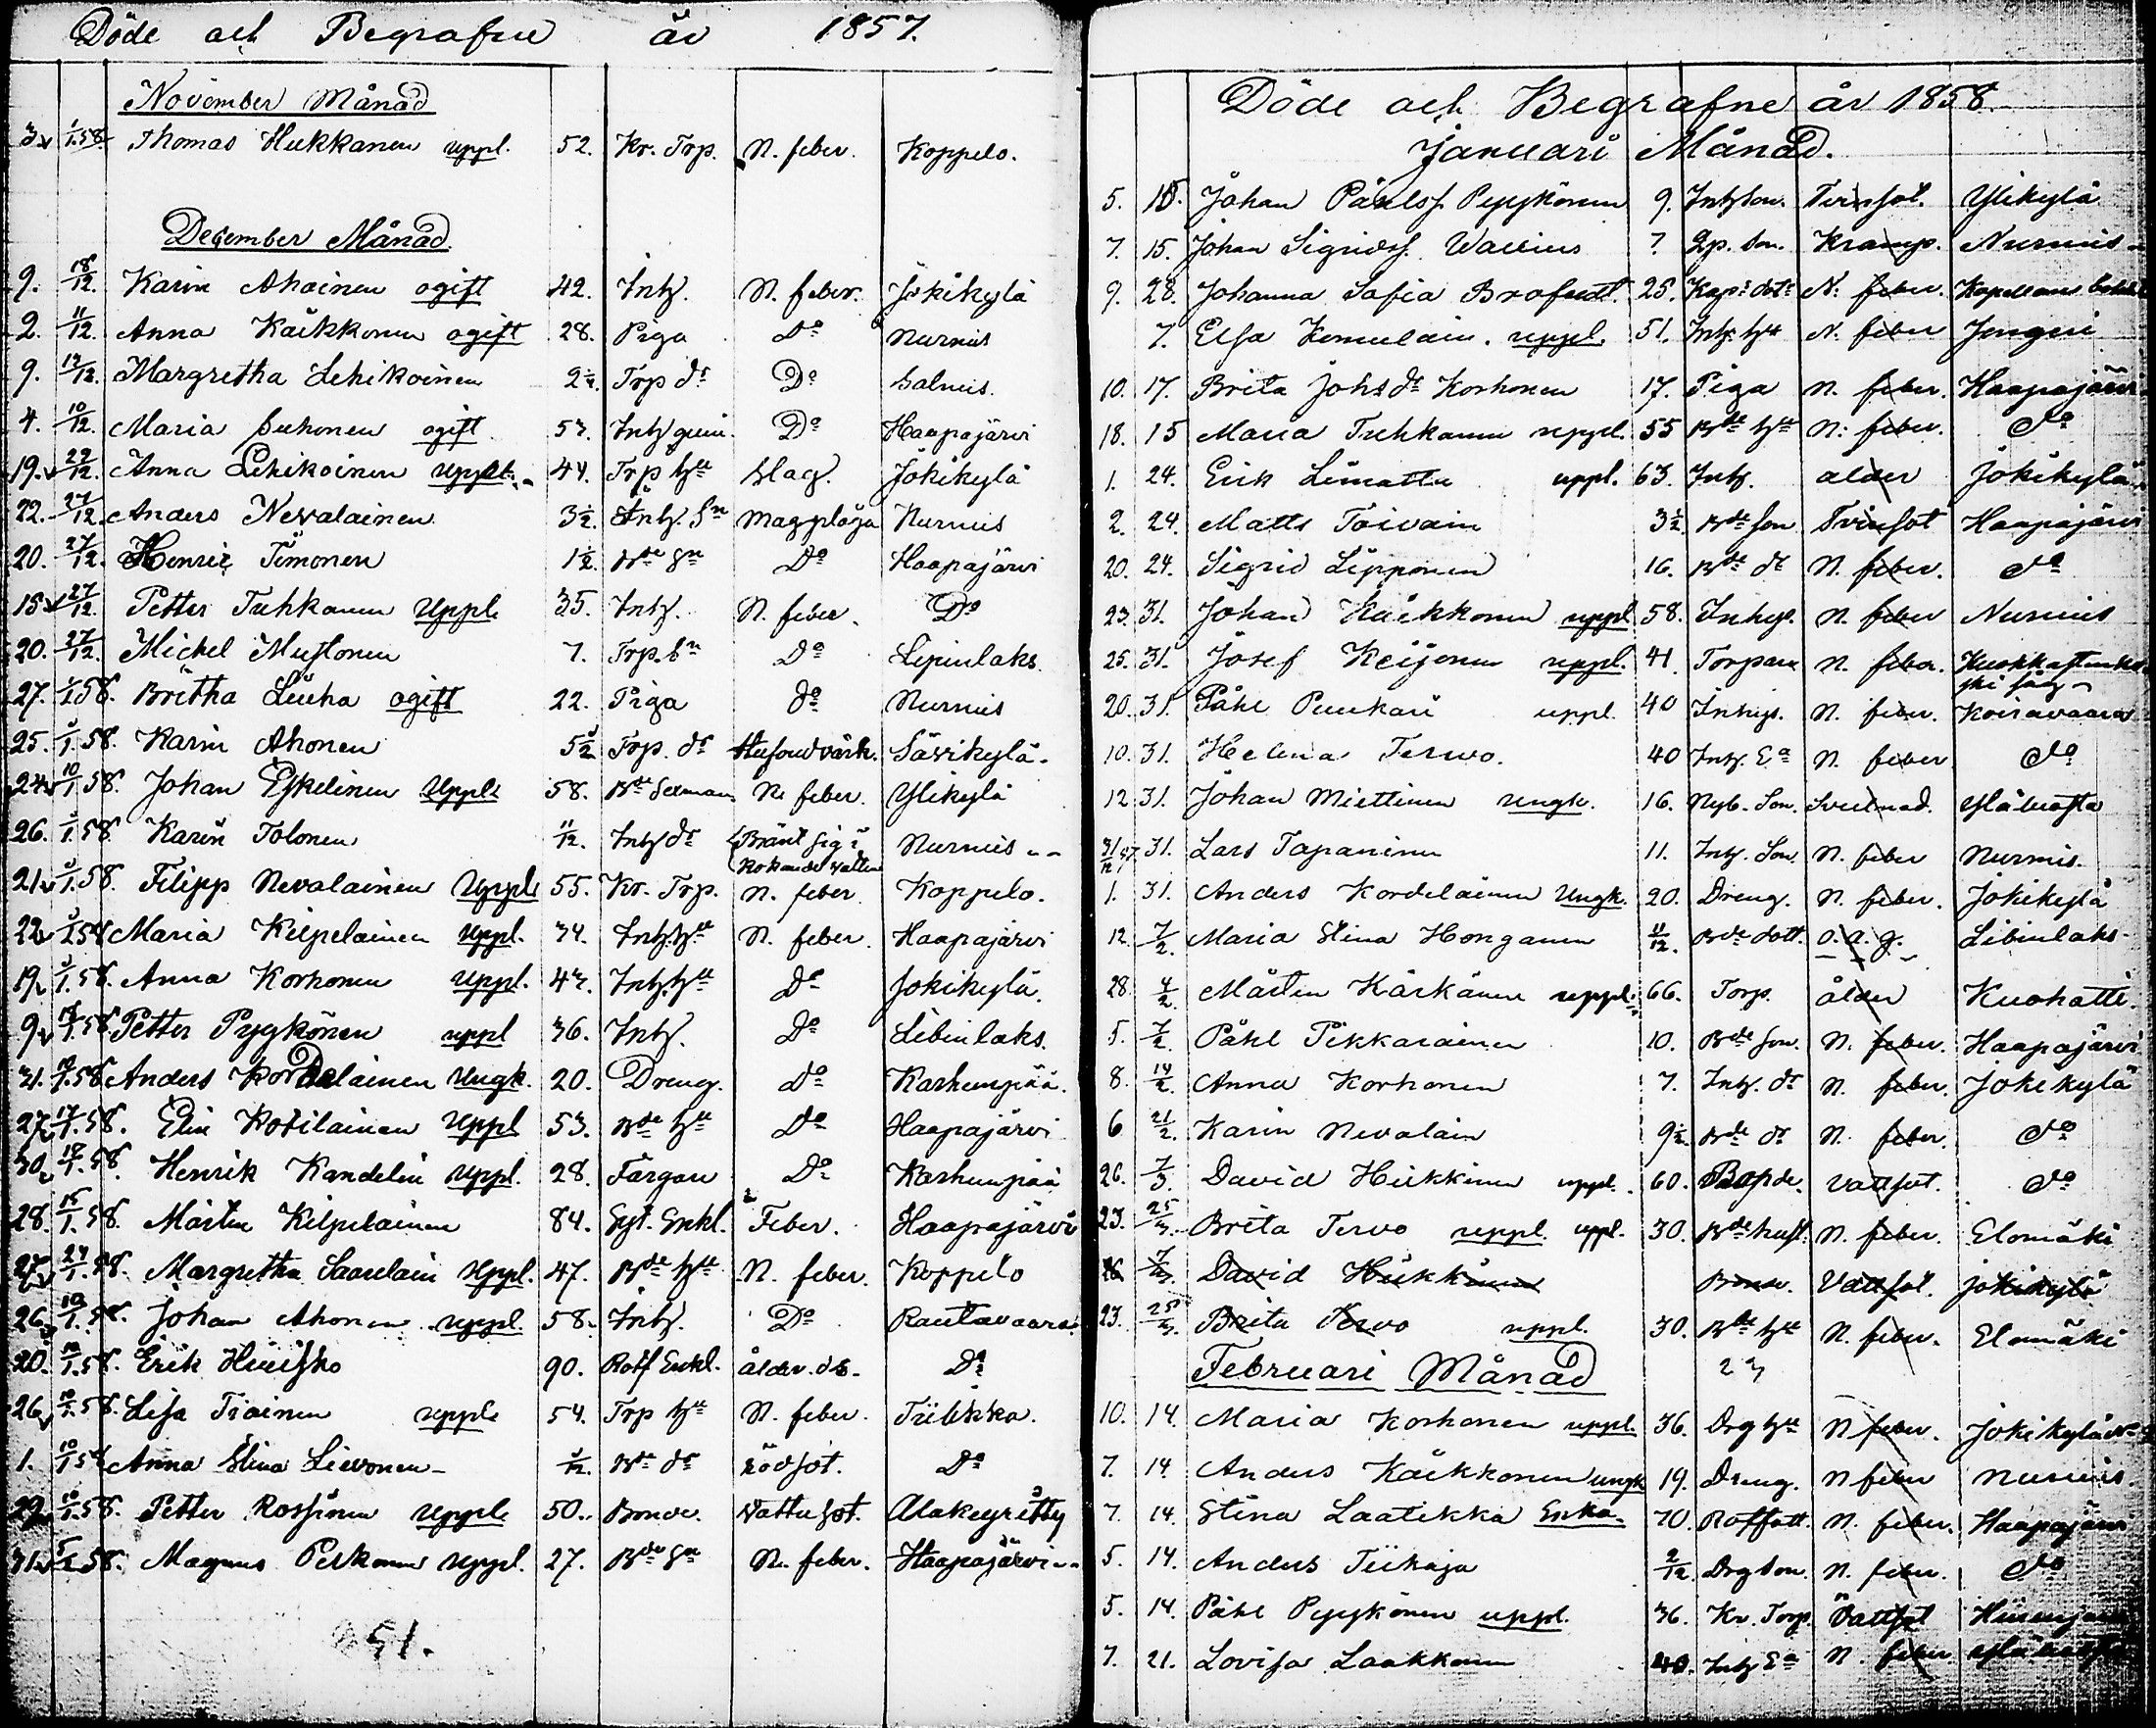 Döde och Begrafne år 1857.
November Månad
3. 1/1.58. Thomas Hukkanen uppl. 52. Kr. Trp. N. feber. Koppelo.
December Månad
9. 18/12. Karin Ahoinen ogift 42. Inh. N. feber. Jokikylä
2. 11/12. Anna Käikkonen ogift 28. Piga Do Nurmis
9. 19/12. Margretha Lehikoinen Trp dr Do Salmis.
4. 10/12. Maria ogift 53. Do Haapajärvi
19. 29/12. Anna Lehikoinen uppl. 44. Trp hu Slag. Jokikylä
22. 27/12. Anders Nevalainen 3½. Inh. Sn Magplåga Nurmis
20. 27/12. Henric Timonen 1½. Bde Sn Do Haapajärvi
15. 27/12. Petter Tuhkanen Uppl. 35. Inh. N. feber. Do
20. 27/12. Michel Mustonen 7. Trp. Sn Do Lipinlaks.
27. 1/1.58. Britha Liuha ogift 22. Piga do Nurmis
25. 3/1.58. Karin Ahonen 5½ Trp. dr Hufoudvärk. Sävikylä.
24. 10/1.58. Johan Eskelinen Uppl. 58. Bde N. feber. Ylikylä
26. 3/1.58. Karin Tolonen 11/12. Inh dr Bränt sig i Nurmis
kokande vatten
21. 3/1.58. Filipp Nevalainen Uppl. 55. Kr. Trp. N. feber. Koppelo.
22. 3/1.58 Maria Kilpelainen uppl. 34. Inh. hu N. feber. Haapajärvi
19. 3/1.58. Anna Korhonen uppl. 43. Inh. hu Do Jokikylä.
9. 17/1.58. Petter Pyykönen uppl 36. Inh. Do Libinlaks.
31. 10/1.58 Anders Kordelainen Ungk. 20. Dreng. do Karhunpää.
27. 17/1.58. Elin Kotilainen Uppl 53. Bde hu Do Haapajärvi
30. 17/1.58. Henrik Kandelin uppl. 28. Färgare Do Karhunpää
28. 15/1.58. Mårten Kilpelainen 84. Feber. Haapajärvi
27. 24/1.58. Margretha Saarelain uppl. 47. Bde hu N. feber. Koppelo
26. 10/1.58. Johan Ahonen uppl. 58. Inh. Do Rautavaara.
20. 10/1.58. Erik 90. Rotf Enkl. ålder. ds. Do
26. 10/1.58. Lisa Tiainen uppl. 54. Trp hu N. feber. Tiilikka.
1. 10/1 58 Anna Stina Lievonen 3/12. Bde dr Rödsot. Do
29. 10/1.58. Petter uppl. 50. Bonde. Vattusot. Alakeyritty
31. 5/2 58. Magnus uppl. 27. Bde Sn N. feber. Haapajärvi
51.
Döde och Begrafne år 1858.
Januari Månad.
5. 15. Johan Påhlss. Pyykönen 9. Inh son. Tvinsot. Ylikylä
7. 15. Johan Sigridss. ? Son. Kramp. Nurmis
9. 28. Johanna Sofia 25. N. feber.
7. Elsa Komulain. uppl. 51. Inh. hu N. feber Jongeri
10. 17. Brita Johsdr Korhonen 17. Piga N. feber. Haapajärvi
18. 15 Maria Tuhkanen uppl. 55 Bde hu N. feber. do
1. 24. Erik Limatta uppl. 63. Inh. ålder Jokikylä
2. 24. Matts Toivain 3½ Bde son Tvinsot Haapajärvi
20. 24. Sigrid Lipponen 16. Bde dr N. feber. do
23. 31. Johan Käikkonen uppl 58. Inhys. N. feber Nurmis
25. 31. Josef Keijonen uppl. 41. Torpare N. feber.
20. 31. Påhl Puukari uppl 40 Inhys. N. feber. Koiravaara
10. 31. Helena Tervo. 40 Inh. Ea N. feber do
12 31. Johan Miettinen ungk. 16. Nyb. Son.
31/12 57. 31. Lars Tapaninen 11. Inh. Son N. feber Nurmis.
1. 31. Anders Kordelainen Ungk. 20. Dreng. N. feber. Jokikylä
12. 7/2. Maria Stina Honganen 11/12. Bde dott. o. a. g. Libinlaks
28. 4/2. Mårten Kärkäinen uppl. 66. Torp. ålder Kuohatti.
5. 7/2. Påhl Pikkarainen 10. Bde son. N. feber. Haapajärvi
8. 14/2. Anna Korhonen 7. Inh. dr N. feber. Jokikylä
6 21/2. Karin Nevalain 9½. Bde dr N. feber. do
26. 7/3. David Hukkinen uppl. 60. Vattsot. do
23. 25/3. Brita Tervo uppl. uppl. 30. Bde hust. N. feber. Elomäki
26 7/3. David Hukkinen Bonde. Vattsot. Jokikylä
23. 25/3. Brita Tervo uppl. 30. Bde hu N. feber. Elomäki
Februari Månad 23
10. 14. Maria Korhonen uppl. 36. Drg hu N feber. Jokikylä
7. 14. Anders Käikkonen ungk 19. Dreng. N feber Nurmis
7. 14. Stina Laatikka Enka. 70. N. feber. Haapajärvi
5. 14. Anders Tiikaja 2/12. Drg Son. N. feber. do
5. 14. Påhl Pyykönen uppl. 36. Kr. Torp. Vattsot
7. 21. Lovisa Laakkonen 40. Inh Ea N. feber